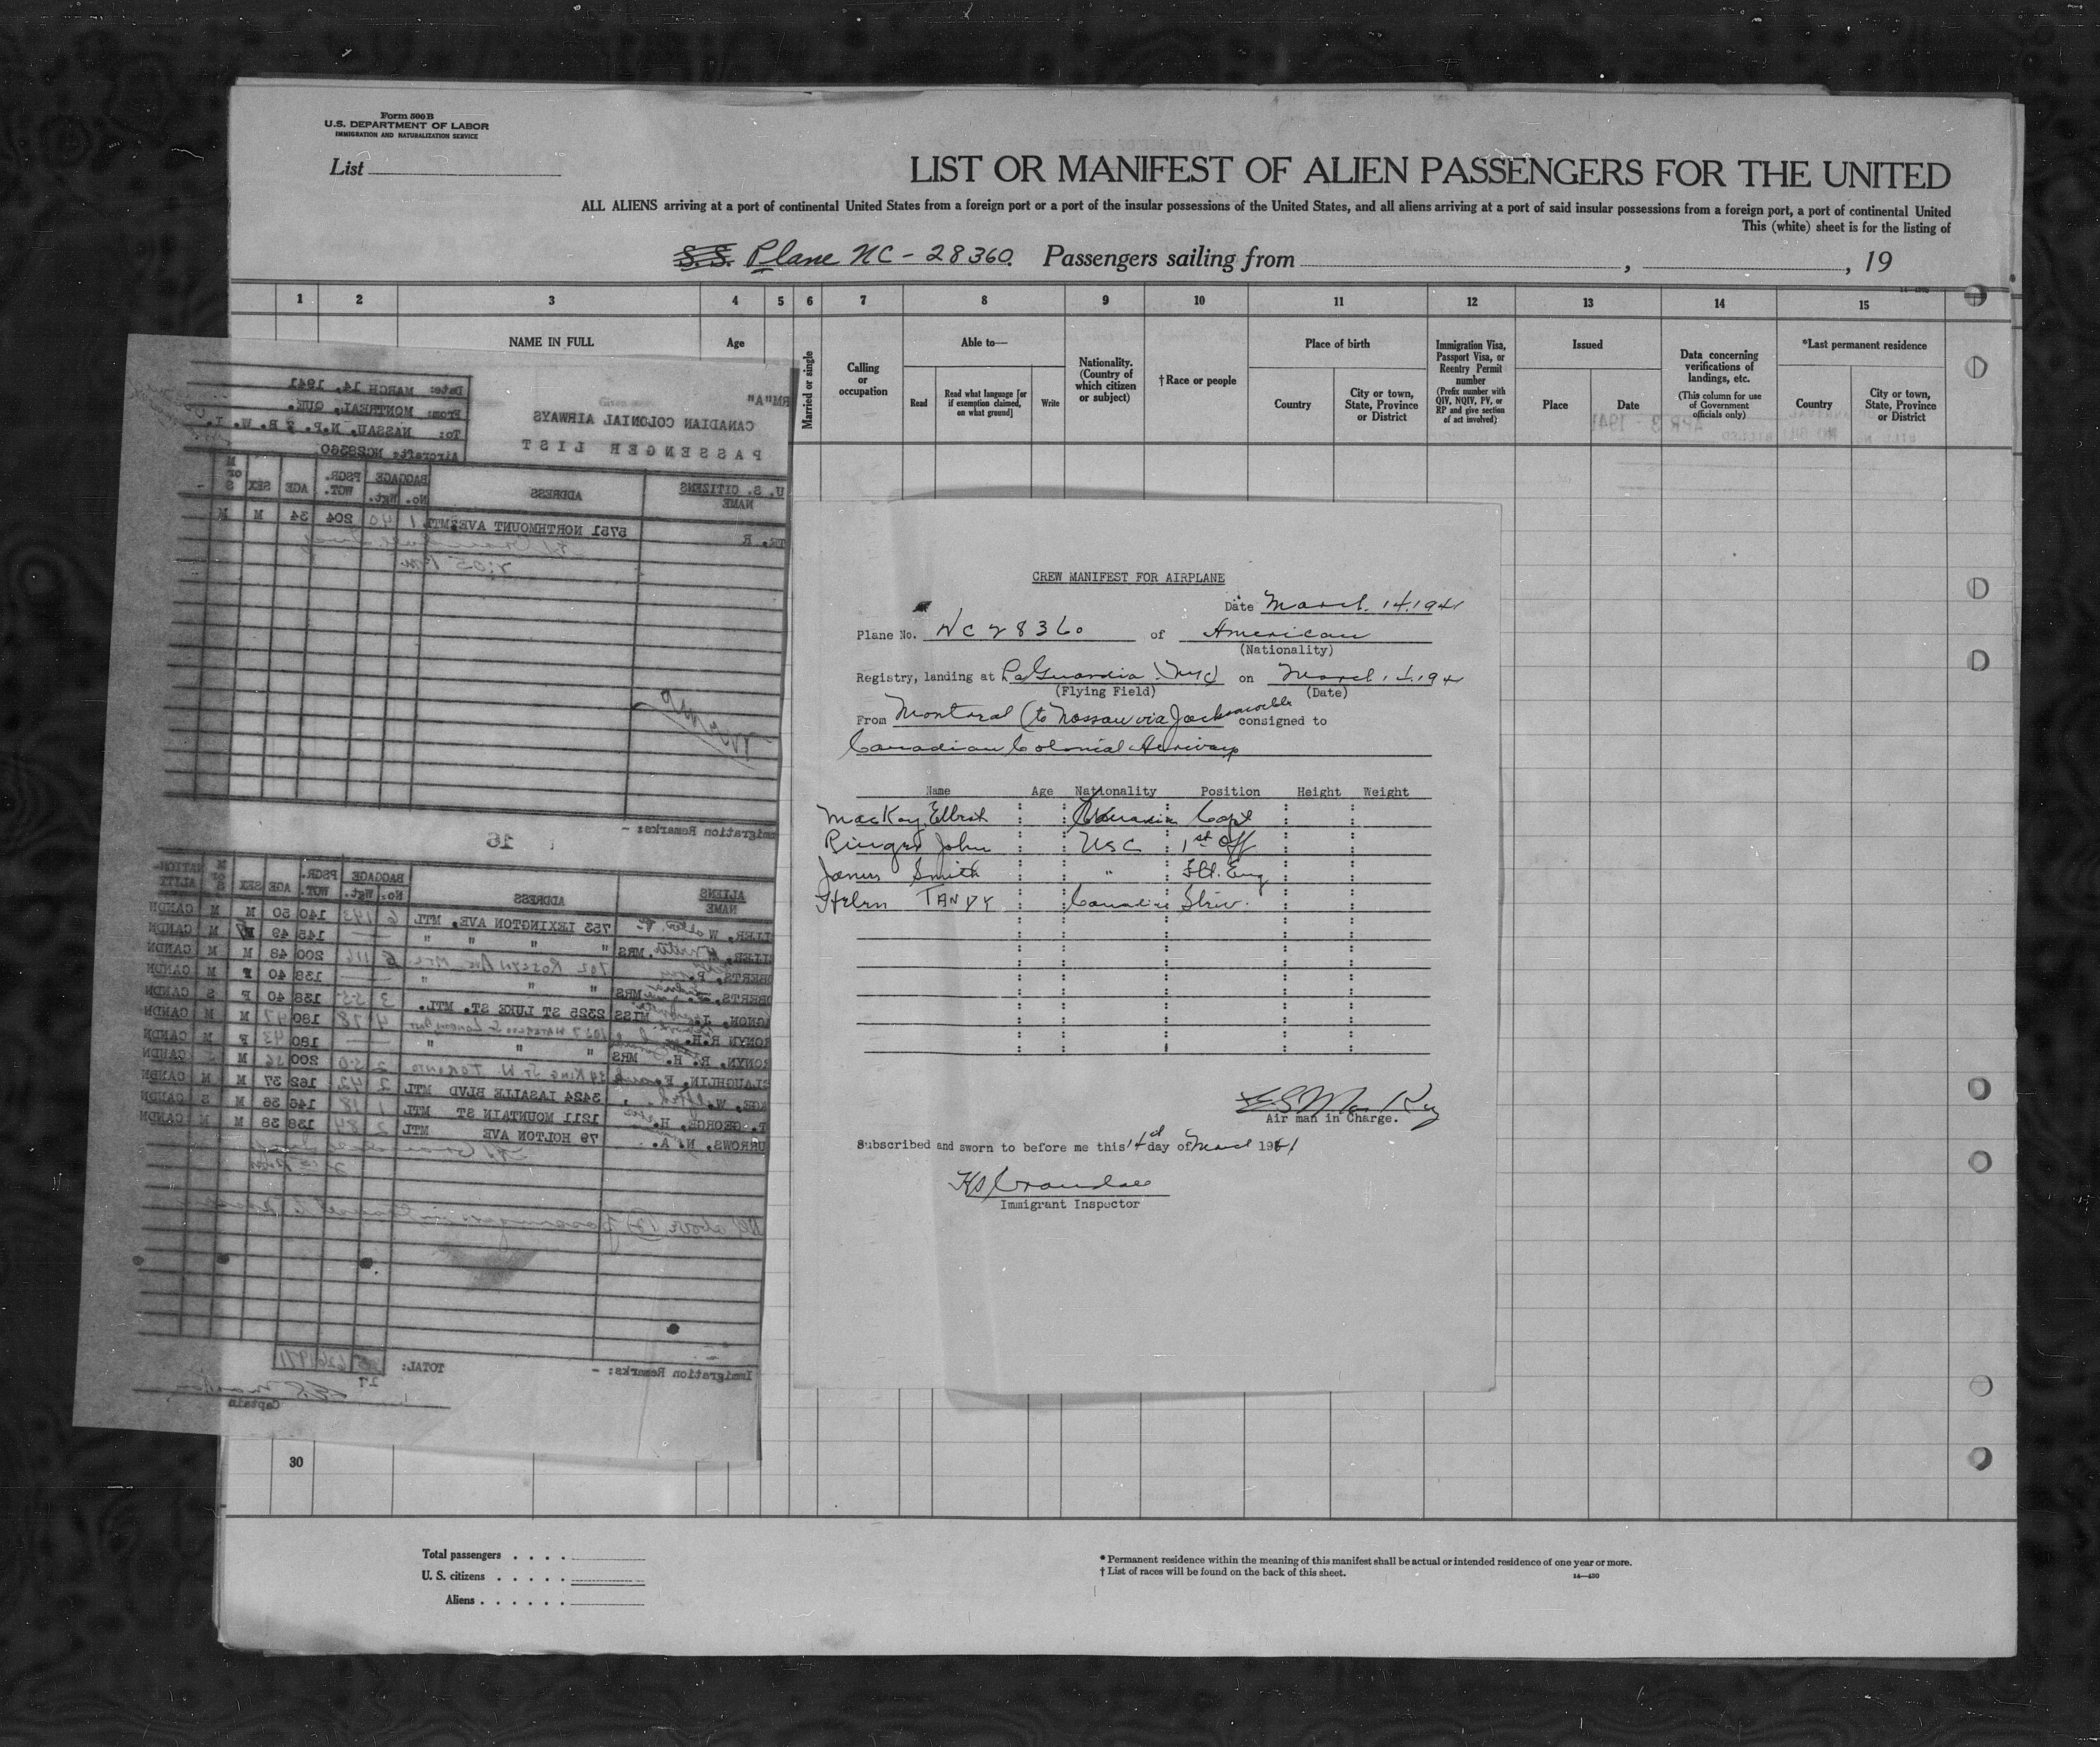 Form 500B
U.S. DEPARTMENT OF LABOR
IMMIGRATION AND NATURALIZATION SERVICE
List
LIST OR MANIFEST OF ALIEN PASSENGERS FOR THE UNITED
ALL ALIENS arriving at a port of continental United States from a foreign port or a port of the insular possessions of the United States, and all aliens arriving at a port of said insular possessions from a foreign port, a port of continental United
This (white) sheet is for the listing of
S.S. Plane NC-28360. Passengers sailing from , , 19
1 2 3 4 5 6 7 8 9 10 11 12 13 14 15
NAME IN FULL
Age
Married or single
Calling or occupation
Able to—
Read
Read what language [or if exemption claimed, on what ground]
Write
Nationality. (Country of which citizen or subject)
†Race or people
Place of birth
Country
City or town, State, Province or District
Immigration Visa, Passport Visa, or Reentry Permit number
(Prefix number with QIV, NQIV, PV, or RP and give section of act involved)
Issued
Place
Date
Data concerning verifications of landings, etc.
(This column for use of Government officials only)
*Last permanent residence
Country
City or town, State, Province or District
APR 3 - 1941
Date: MARCH 14, 1941
From: MONTREAL, QUE.
To: NASSAU, N.P. & B. W. I.
Aircraft: NC28360
RM"A"
CANADIAN COLONIAL AIRWAYS
PASSENGER LIST
U. S. CITIZENS
NAME
ADDRESS
BAGGAGE
No. Wgt.
PSGR. WGT.
AGE
SEX
M or S
TR, R 5751 NORTHMOUNT AVE MTL 1 40 204 34 M M
2:05 PM
Immigration Remarks: -
16
ALIENS
NAME
ADDRESS
BAGGAGE
No. Wgt.
PSGR. WGT.
AGE
SEX
M or S
NATIONALITY
LLER, W 753 LEXINGTON AVE, MTL 6 143 140 50 M M CANDN
LLER, MRS " " " — — 145 49 F M CANDN
BERTS, P. 702 ROSLYN AVE MTL 5 116 200 48 M M CANDN
BERTS, MRS " " " — — 138 40 F M CANDN
GNON, J. MISS 2325 ST LUKE ST. MTL. 3 55 138 40 F S CANDN
RONYN R.H. 1027 WATERLOO S LONDON ONT 4 78 180 47 M M CANDN
RONYN, R. H. MRS " " " — — 180 43 F M CANDN
SLAUGHLIN, F. 34 KING ST W TORONTO 2 50 200 56 M CANDN
AGE, W. 3424 LASALLE BLVD MTL 2 42 162 37 M M CANDN
T. GEORGE, H. 1211 MOUNTAIN ST MTL 1 18 146 36 M S CANDN
URROWS, N. A. 79 HOLTON AVE MTL 2 84 138 38 M M CANDN
All above passengers in transit to Nassau
TOTAL:
27
Immigration Remarks: -
Captain
CREW MANIFEST FOR AIRPLANE
Date March. 14. 1941
Plane No. NC 28360 of American
(Nationality)
Registry, landing at LaGuardia (NYC) on March 14. 1941
(Flying Field) (Date)
From Montreal (to Nassau via Jacksonville consigned to
Canadian Colonial Airways
Name Age Nationality Position Height Weight
MacKay, Elbert Canadian Capt
John USC 1st Off
James Smith " Flt. Eng
Helen TANDY Canadian Stew.
E S MacKay
Air man in Charge.
Subscribed and sworn to before me this 14th day of March 1941
H S Crandall
Immigrant Inspector
30
Total passengers . . . .
U. S. citizens . . . . .
Aliens . . . . . .
*Permanent residence within the meaning of this manifest shall be actual or intended residence of one year or more.
† List of races will be found on the back of this sheet.
14—430